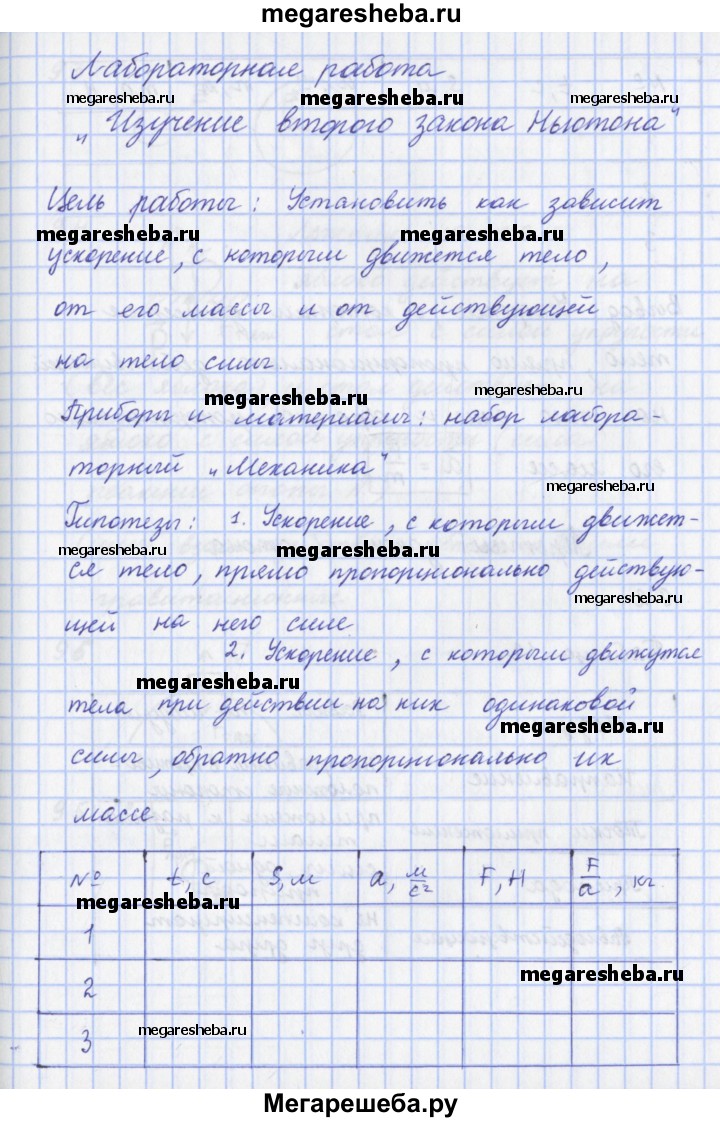 megaresheba.ru
Лабораторная работа
megaresheba.ru megaresheba.ru megaresheba.ru
„Изучение второго закона Ньютона"
Цель работы: Установить как зависит
megaresheba.ru megaresheba.ru
ускорение, с которым движется тело,
от его массы и от действующей
на тело силы.
megaresheba.ru megaresheba.ru
Приборы и материалы: набор лабора-
торный „Механика"
megaresheba.ru
Гипотезы: 1. Ускорение, с которым движет-
megaresheba.ru megaresheba.ru
ся тело, прямо пропорционально действую-
megaresheba.ru
щей на него силе
2. Ускорение, с которым движутся
megaresheba.ru
тела при действии на них одинаковой
megaresheba.ru
силы, обратно пропорционально их
массе
№ t, с S, м a, м/с² F, Н F/a, кг
megaresheba.ru
1
megaresheba.ru
2
megaresheba.ru
3
Мегарешеба.ру